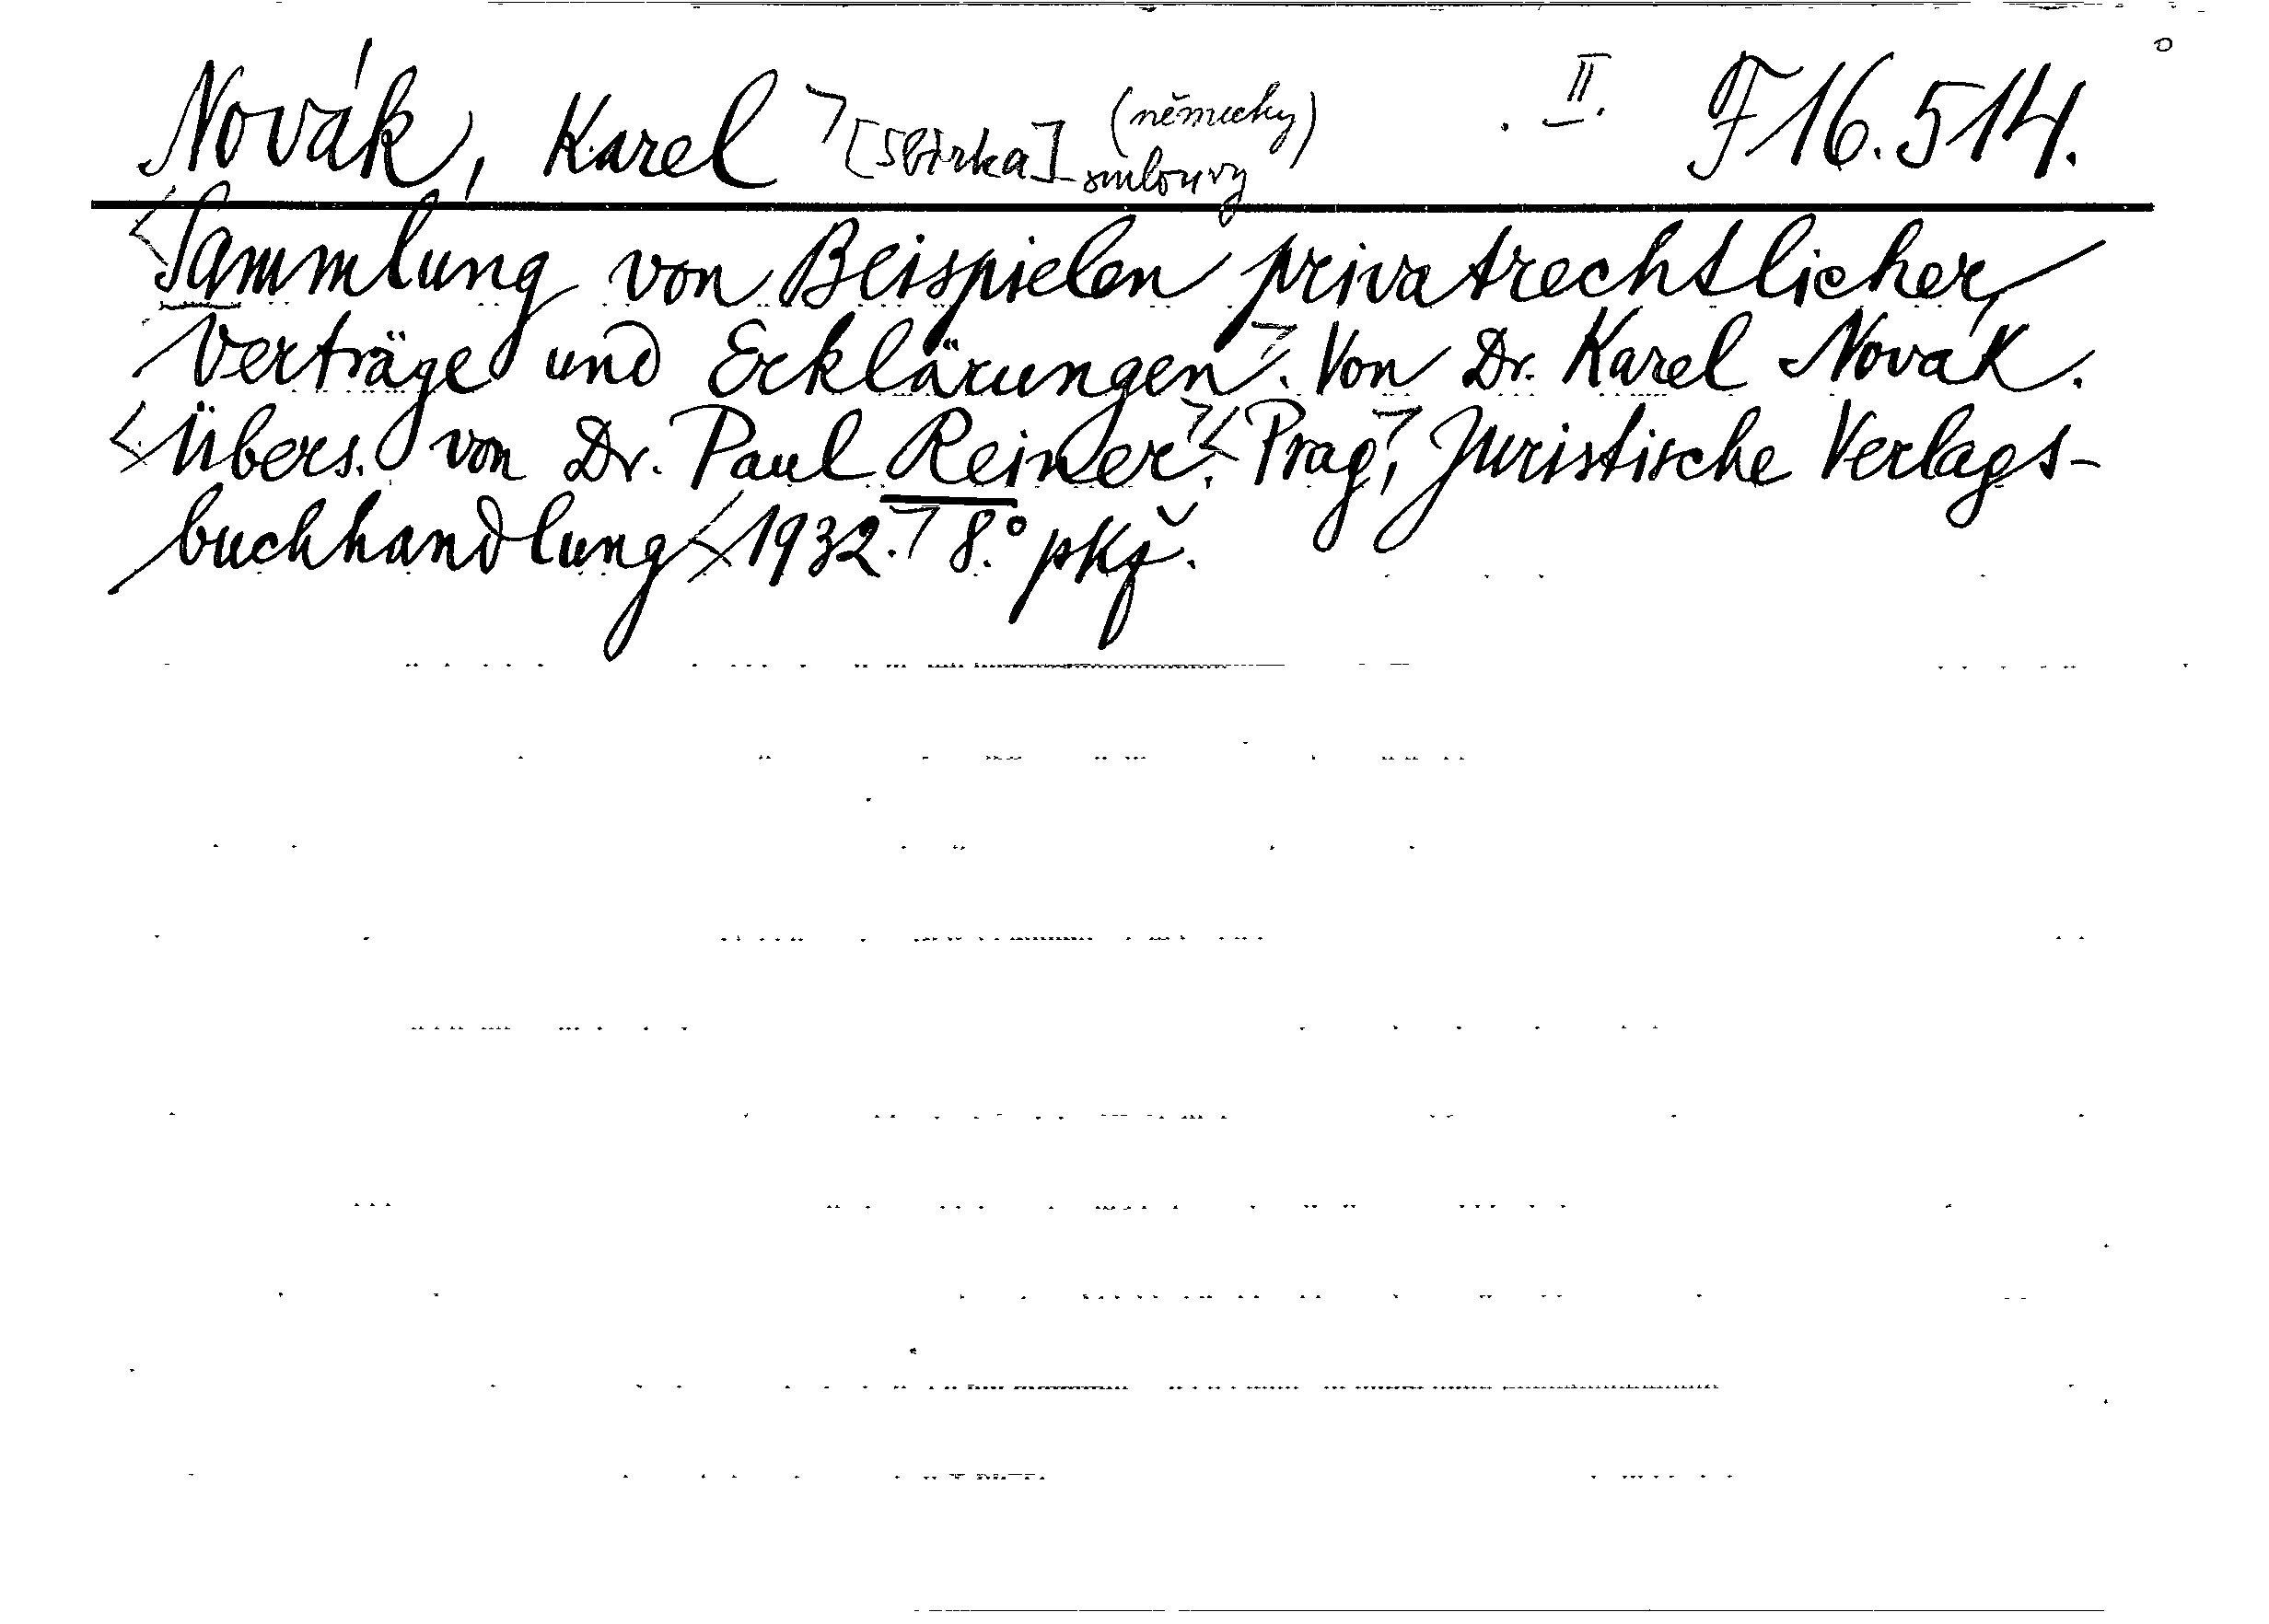 Novák, Karel [Sbírka] smlouvy (německy) . II. F 16.514.
Sammlung von Beispielen privatrechtlicher
Verträge und Erklärungen. Von Dr. Karel Novák.
Übers. von Dr. Paul Reiner. Prag, Juristische Verlags-
buchhandlung 1932. 8.°